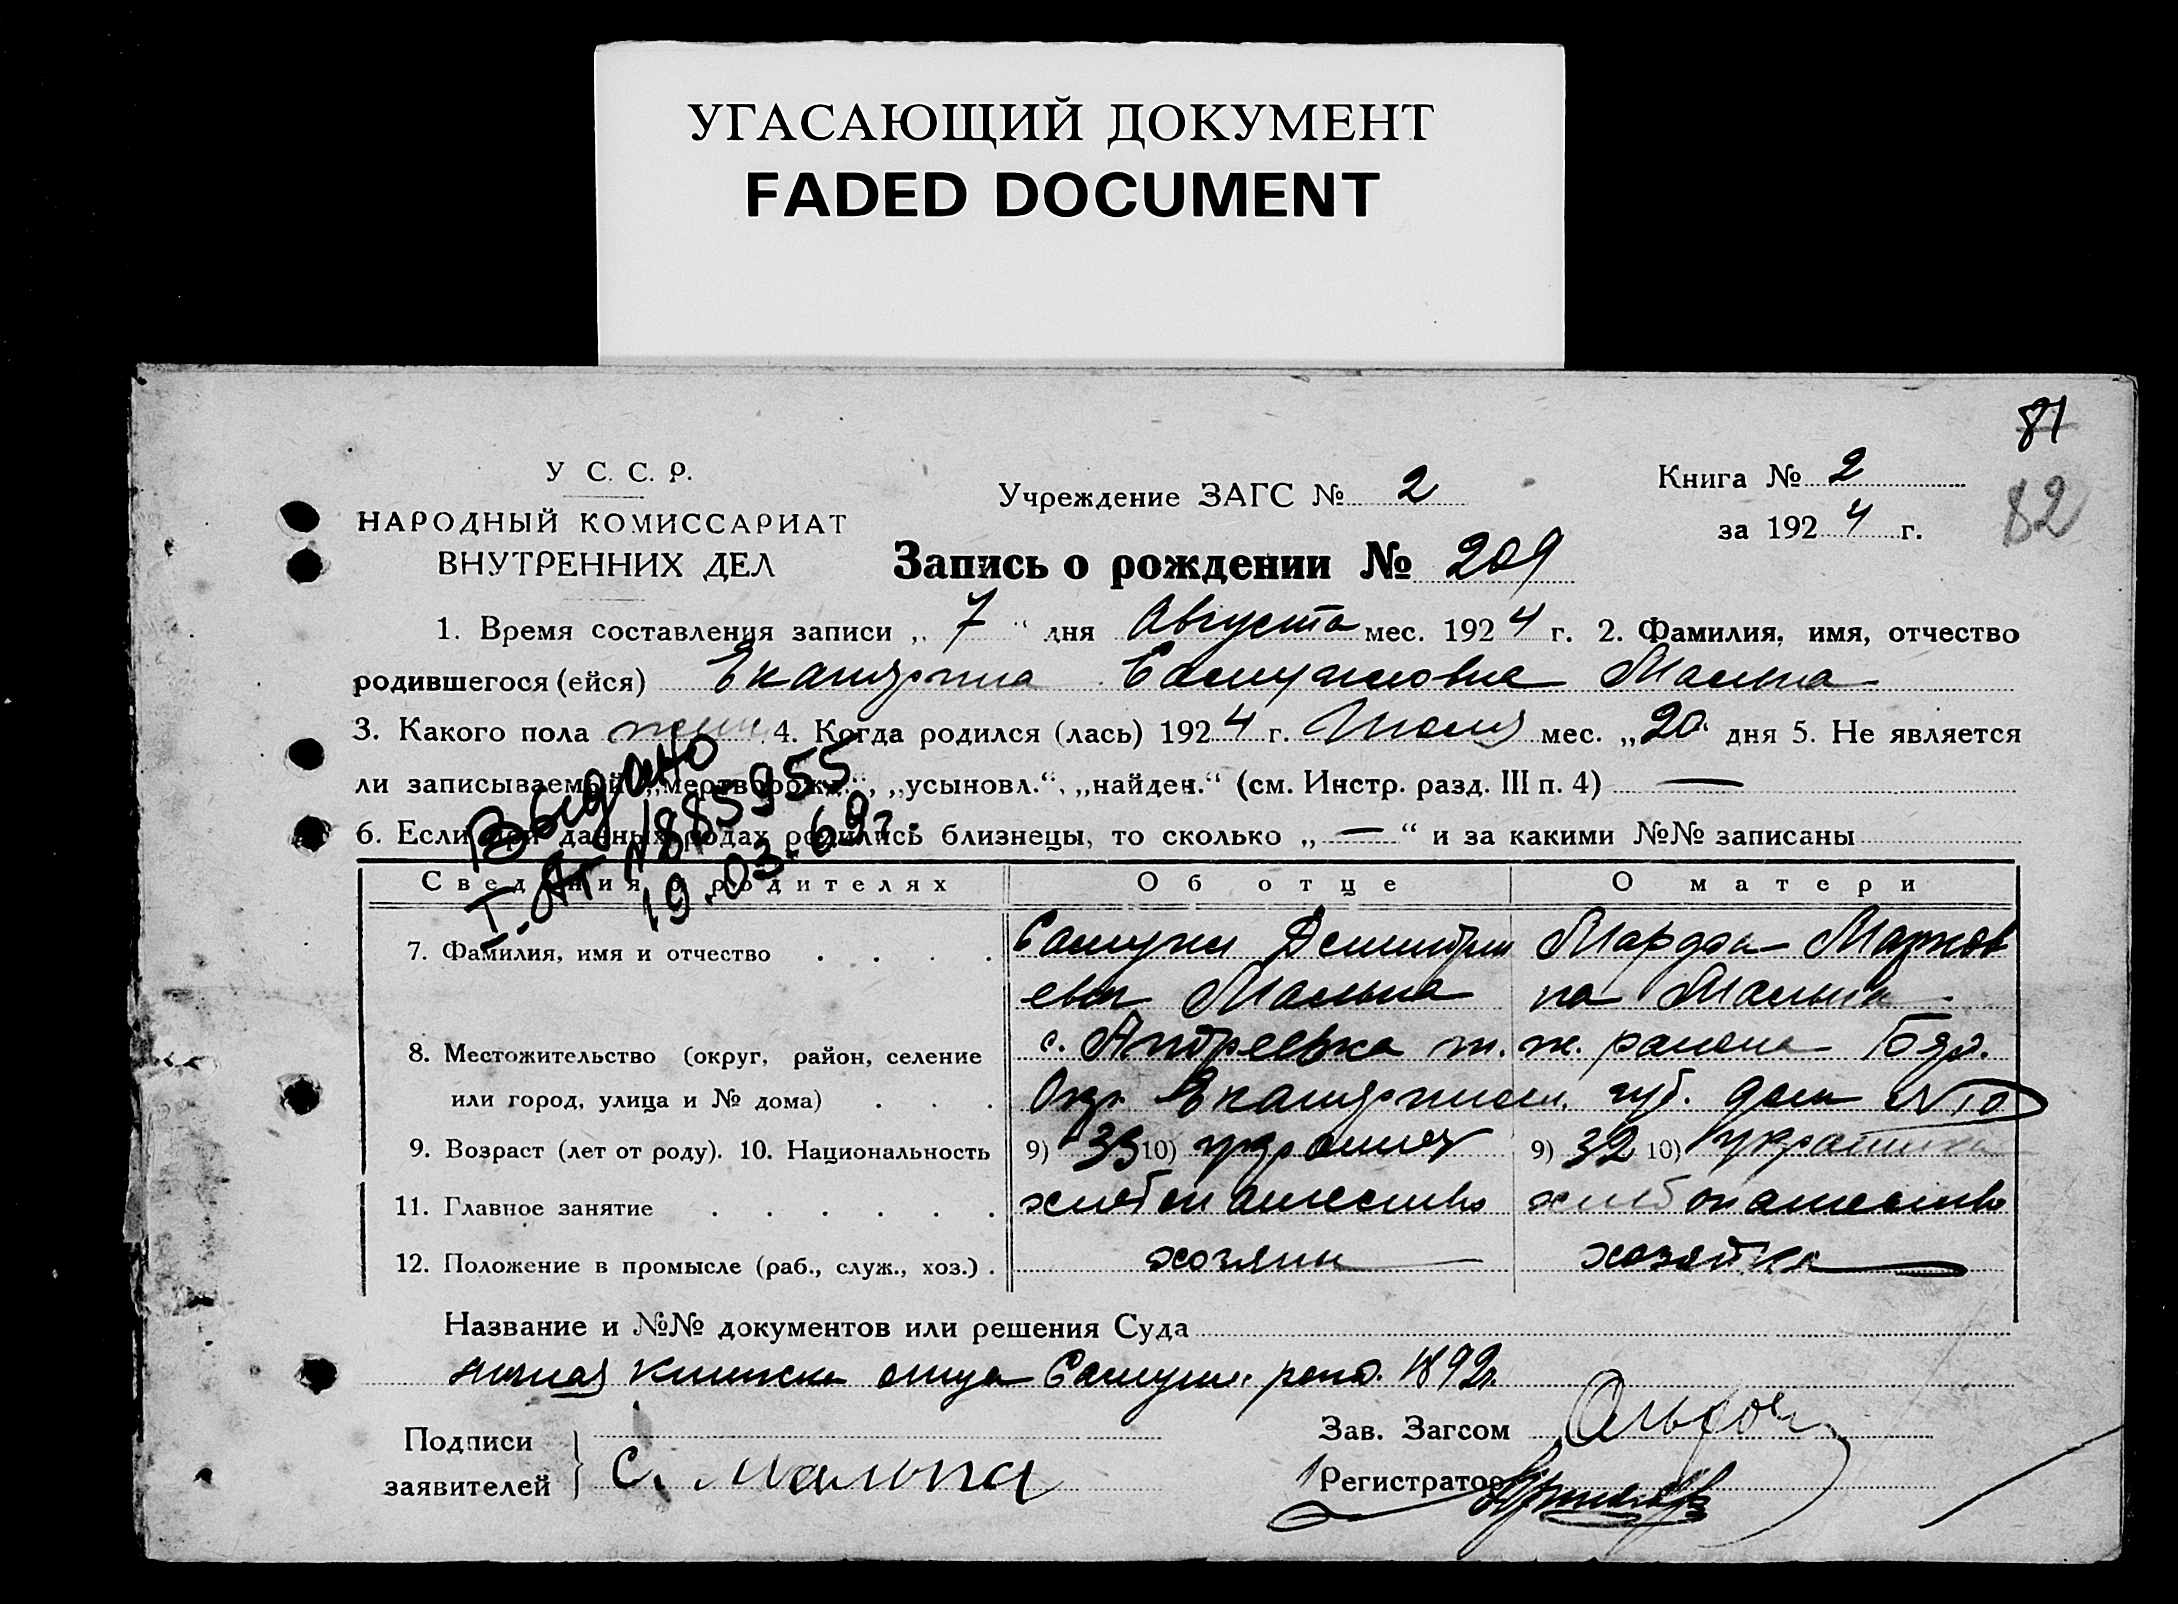 УГАСАЮЩИЙ ДОКУМЕНТ
FADED DOCUMENT
81
82
У С. С. Р.
НАРОДНЫЙ КОМИССАРИАТ
ВНУТРЕННИХ ДЕЛ
Учреждение ЗАГС № 2
Книга № 2
за 1924 г.
Запись о рождении № 209
1. Время составления записи „ 7 “ дня Августа мес. 1924 г. 2. Фамилия, имя, отчество
родившегося (ейся) Малына
3. Какого пола жен 4. Когда родился (лась) 1924 г. Июля мес. „20 дня 5. Не является
ли записываемый „мертворожд.“, „усыновл.“, „найден.“ (см. Инстр. разд. III п. 4) —
6. Если при данных родах родились близнецы, то сколько „—“ и за какими №№ записаны
Выдано
I-АГ №885955
19.03.69г.
Сведения о родителях Об отце О матери
7. Фамилия, имя и отчество . . . .
Димитри
евич Малына
Марфа Марков
на Малына
8. Местожительство (округ, район, селение
или город, улица и № дома) . . .
с. Андреевка т. ж. района Бер.
Окр. губ. дом №10
9. Возраст (лет от роду). 10. Национальность 9) 33 10) украинец 9) 32 10) украинка
11. Главное занятие . . . . . . хлебопашество хлебопашество
12. Положение в промысле (раб., служ., хоз.) . хозяин хозяйка
Название и №№ документов или решения Суда
книжка отца 1892г.
Подписи
заявителей
С. Малына
Зав. Загсом
Регистратор